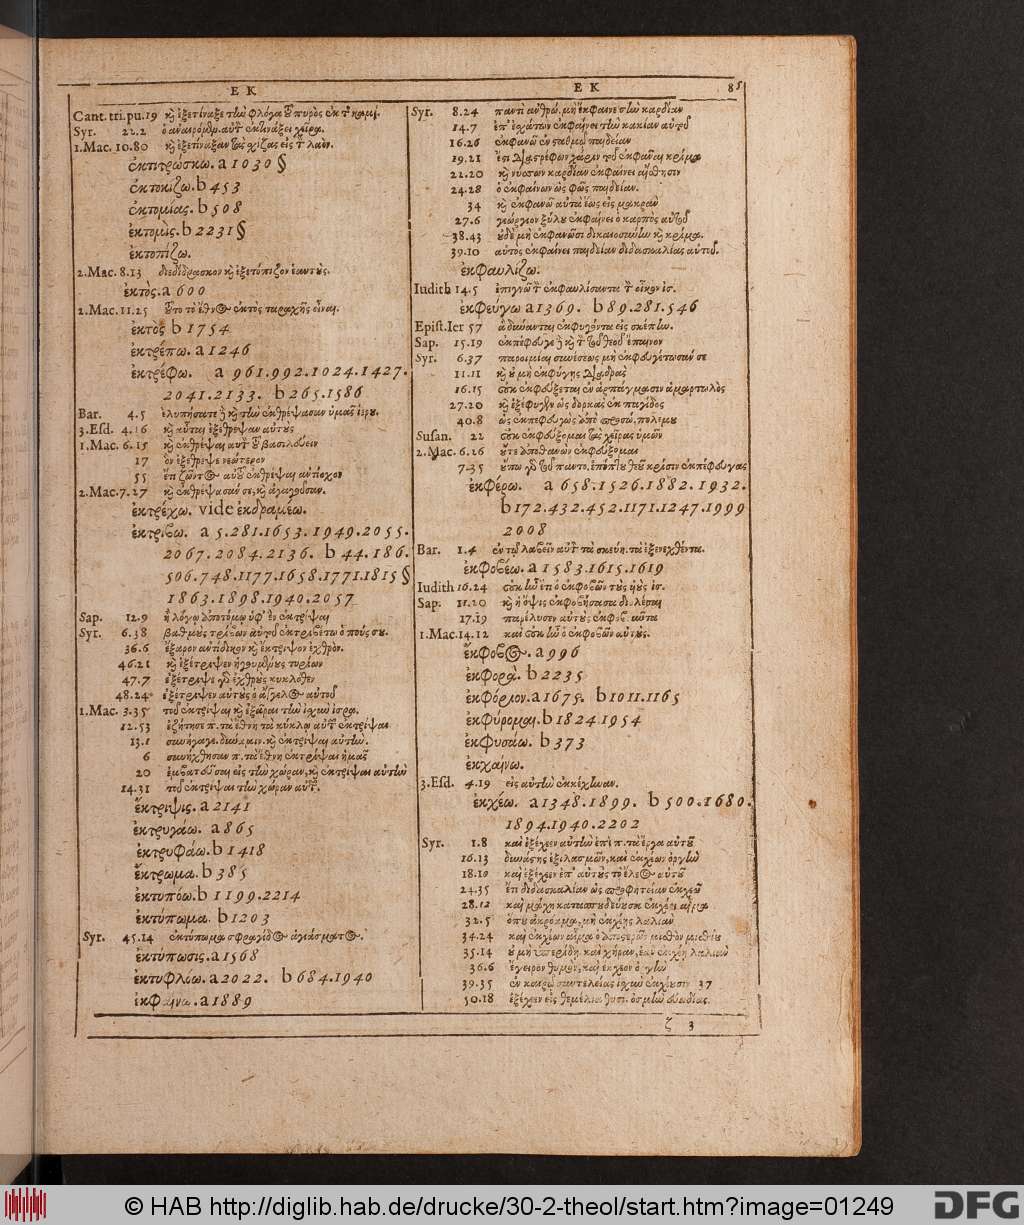 E K
E K
85
Cant. tri. pu. 19 κὶ ἐξετίναξε τὴν φλόγα τοῦ πυρὸς ἐκ τῆς καμί.
Syr. 22.2 ὁ ἀναιρόμεν. αὐτ ἐκτινάξει χεῖρα.
1. Mac. 10.80 κὶ ἐξετίναξαν τὰς χίζας εἰς τ λαόν.
ἐκτιτρώσκω. a 1030 §
ἐκτοκίζω. b 453
ἐκτομίας. b 508
ἐκτομὶς. b 2231 §
ἐκτοπίζω.
2. Mac. 8.13 διεδίδρασκον κὶ ἐξετόπιζον ἑαυτούς.
ἐκτὸς. a 600
2. Mac. 11.25 τοῦτο τὸ ἔθνος ἐκτὸς ταραχῆς εἶναι.
ἐκτὸς b 1754
ἐκτρέπω. a 1246
ἐκτρέφω. a 961.992.1024.1427.
2041.2133. b 265.1586
Bar. 4.5 ἐλυπήσατε κὶ τὴν ἐκθρέψασαν ὑμᾶς ἱερου.
3. Esd. 4.16 κὶ αὗται ἐξέθρεψαν αὐτοὺς
1. Mac. 6.15 κὶ ἐκθρέψαι αὐτ τοῦ βασιλεύειν
17 ὃν ἐξέθρεψε νεώτερον
55 ἔτι ζῶντος αὐτοῦ ἐκθρέψαι ἀντίοχον
2. Mac. 7.27 κὶ ἐκθρέψασάν σε, κὶ ἀγαγοῦσαν.
ἐκτρέχω. vide ἐκδραμέω.
ἐκτρίβω. a 5.281.1653.1949.2055.
2067.2084.2136. b 44.186.
506.748.1177.1658.1771.1815 §
1863.1898.1940.2057
Sap. 12.9 ἢ λόγῳ ἀποτόμῳ ὑφ' ἓν ἐκτρίψαι
Syr. 6.38 βαθμοὺς τρίβων αὐτοῦ ἐκτριβέτω ὁ πούς σου.
36.6 ἔξαρον ἀντίδικον κὶ ἔκτριψον ἐχθρόν.
46.21 κὶ ἐξέτριψεν ἡγουμένους τυρίων
47.7 ἐξέτριψε γὰρ ἐχθροὺς κυκλόθεν
48.24 ἐξέτριψεν αὐτοὺς ὁ ἄγγελος αὐτοῦ
1. Mac. 3.35 τοῦ ἐκτρίψαι κὶ ἐξᾶραι τὴν ἰσχὺν ἰσρα.
12.53 ἐζήτησε π. τὰ ἔθνη τὰ κύκλῳ αὐτ ἐκτρίψαι
13.1 συνήγαγε. δύναμιν. κὶ ἐκτρίψαι αὐτήν.
6 συνήχθησαν π. τὰ ἔθνη ἐκτρίψαι ἡμᾶς
20 ἐμβατεῦσαι εἰς τὴν χώραν, κὶ ἐκτρίψαι αὐτὴν
14.31 τοῦ ἐκτρίψαι τὴν χώραν αὐτ.
ἔκτριψις. a 2141
ἐκτρυγάω. a 865
ἐκτρυφάω. b 1418
ἔκτρωμα. b 385
ἐκτυπόω. b 1199.2214
ἐκτύπωμα. b 1203
Syr. 45.14 ἐκτύπωμα σφραγίδος ἁγιάσματος.
ἐκτύπωσις. a 1568
ἐκτυφλόω. a 2022. b 684.1940
ἐκφαίνω. a 1889
Syr. 8.24 παντὶ ἀνθρώ. μὴ ἔκφαινε σὴν καρδίαν
14.7 ἐπ' ἐσχάτων ἐκφαίνει τὴν κακίαν αὐτοῦ
16.26 ἐκφανῶ ἐν σταθμῷ παιδείαν
19.21 ἔστι διαστρέφων χάριν τοῦ ἐκφᾶναι κρίμα
22.20 κὶ νύσσων καρδίαν ἐκφαίνει αἴσθησιν
24.28 ὁ ἐκφαίνων ὡς φῶς παιδείαν.
34 κὶ ἐκφανῶ αὐτὰ ἕως εἰς μακρὰν
27.6 γεώργιον ξύλου ἐκφαίνει ὁ καρπὸς αὐτοῦ
38.43 οὐδὲ μὴ ἐκφανῶσι δικαιοσύνην κὶ κρίμα.
39.10 αὐτὸς ἐκφαίνει παιδείαν διδασκαλίας αὐτοῦ.
ἐκφαυλίζω.
Iudith 14.5 ἐπιγνῷ τ ἐκφαυλίσαντα τ οἶκον ἰσ.
ἐκφεύγω a 1369. b 89.281.546
Epist. Ier 57 ἀδύναται ἐκφυγόντα εἰς σκέπην.
Sap. 15.19 ἐκπέφευγε κὶ τ τοῦ θεοῦ ἔπαινον
Syr. 6.37 παροιμίαι συνέσεως μὴ ἐκφευγέτωσάν σε
11.11 κὶ οὐ μὴ ἐκφύγῃς διαδρὰς
16.15 οὐκ ἐκφεύξεται ἐν ἁρπάγμασιν ἁμαρτωλὸς
27.20 κὶ ἐξέφυγεν ὡς δορκὰς ἐκ παγίδος
40.8 ὡς ἐκπεφευγὼς ἀπὸ προσώ. πολέμου
Susan. 22 οὐκ ἐκφεύξομαι τὰς χεῖρας ὑμῶν
2. Mac. 6.26 οὔτε ἀποθανὼν ἐκφεύξομαι
7.35 οὔπω γὰρ τοῦ παντο. ἐπόπτου θεοῦ κρίσιν ἐκπέφευγας
ἐκφέρω. a 658.1526.1882.1932.
b 172.432.452.1171.1247.1999
2008
Bar. 1.4 ἐν τῷ λαβεῖν αὐτ τὰ σκεύη. τὰ ἐξενεχθέντα.
ἐκφοβέω. a 1583.1615.1619
Iudith 16.24 οὐκ ἦν ἔτι ὁ ἐκφοβῶν τοὺς υἱοὺς ἰσ.
Sap. 11.20 κὶ ἡ ὄψις ἐκφοβήσασα διολέσαι
17.19 παρέλυσεν αὐτοὺς ἐκφοβοῦντα
1. Mac. 14.12 καὶ οὐκ ἦν ὁ ἐκφοβῶν αὐτούς.
ἔκφοβος. a 996
ἐκφορά. b 2235
ἐκφόριον. a 1675. b 1011.1165
ἐκφύρομαι. b 1824.1954
ἐκφυσάω. b 373
ἐκχαίνω.
3. Esd. 4.19 εἰς αὐτὴν ἐκκέχηναν.
ἐκχέω. a 1348.1899. b 500.1680.
1894.1940.2202
Syr. 1.8 καὶ ἐξέχεεν αὐτὴν ἐπὶ π. τὰ ἔργα αὐτοῦ
16.13 δυνάστης ἐξιλασμῶν, καὶ ἐκχέων ὀργὴν
18.10 καὶ ἐξέχεεν ἐπ' αὐτοὺς τὸ ἔλεος αὐτοῦ
24.35 ἔτι διδασκαλίαν ὡς προφητείαν ἐκχεῶ
28.12 καὶ μάχη κατασπεύδουσα ἐκχέει αἷμα
32.5 ὅπου ἀκρόαμα, μὴ ἐκχέῃς λαλιὰν
34.24 καὶ ἐκχέων αἷμα ὁ ἀποστερῶν μισθὸν μισθίου
35.14 οὐ μὴ ὑπερίδῃ. καὶ χήραν, ἐὰν ἐκχέῃ λαλιὰν
36.6 ἔγειρον θυμὸν, καὶ ἔκχεον ὀργὴν
39.35 ἐν καιρῷ συντελείας ἰσχὺν ἐκχέουσιν 37
50.18 ἐξέχεεν εἰς θεμέλια θυσι. ὀσμὴν εὐωδίας.
ζ 3
© HAB http://diglib.hab.de/drucke/30-2-theol/start.htm?image=01249
DFG